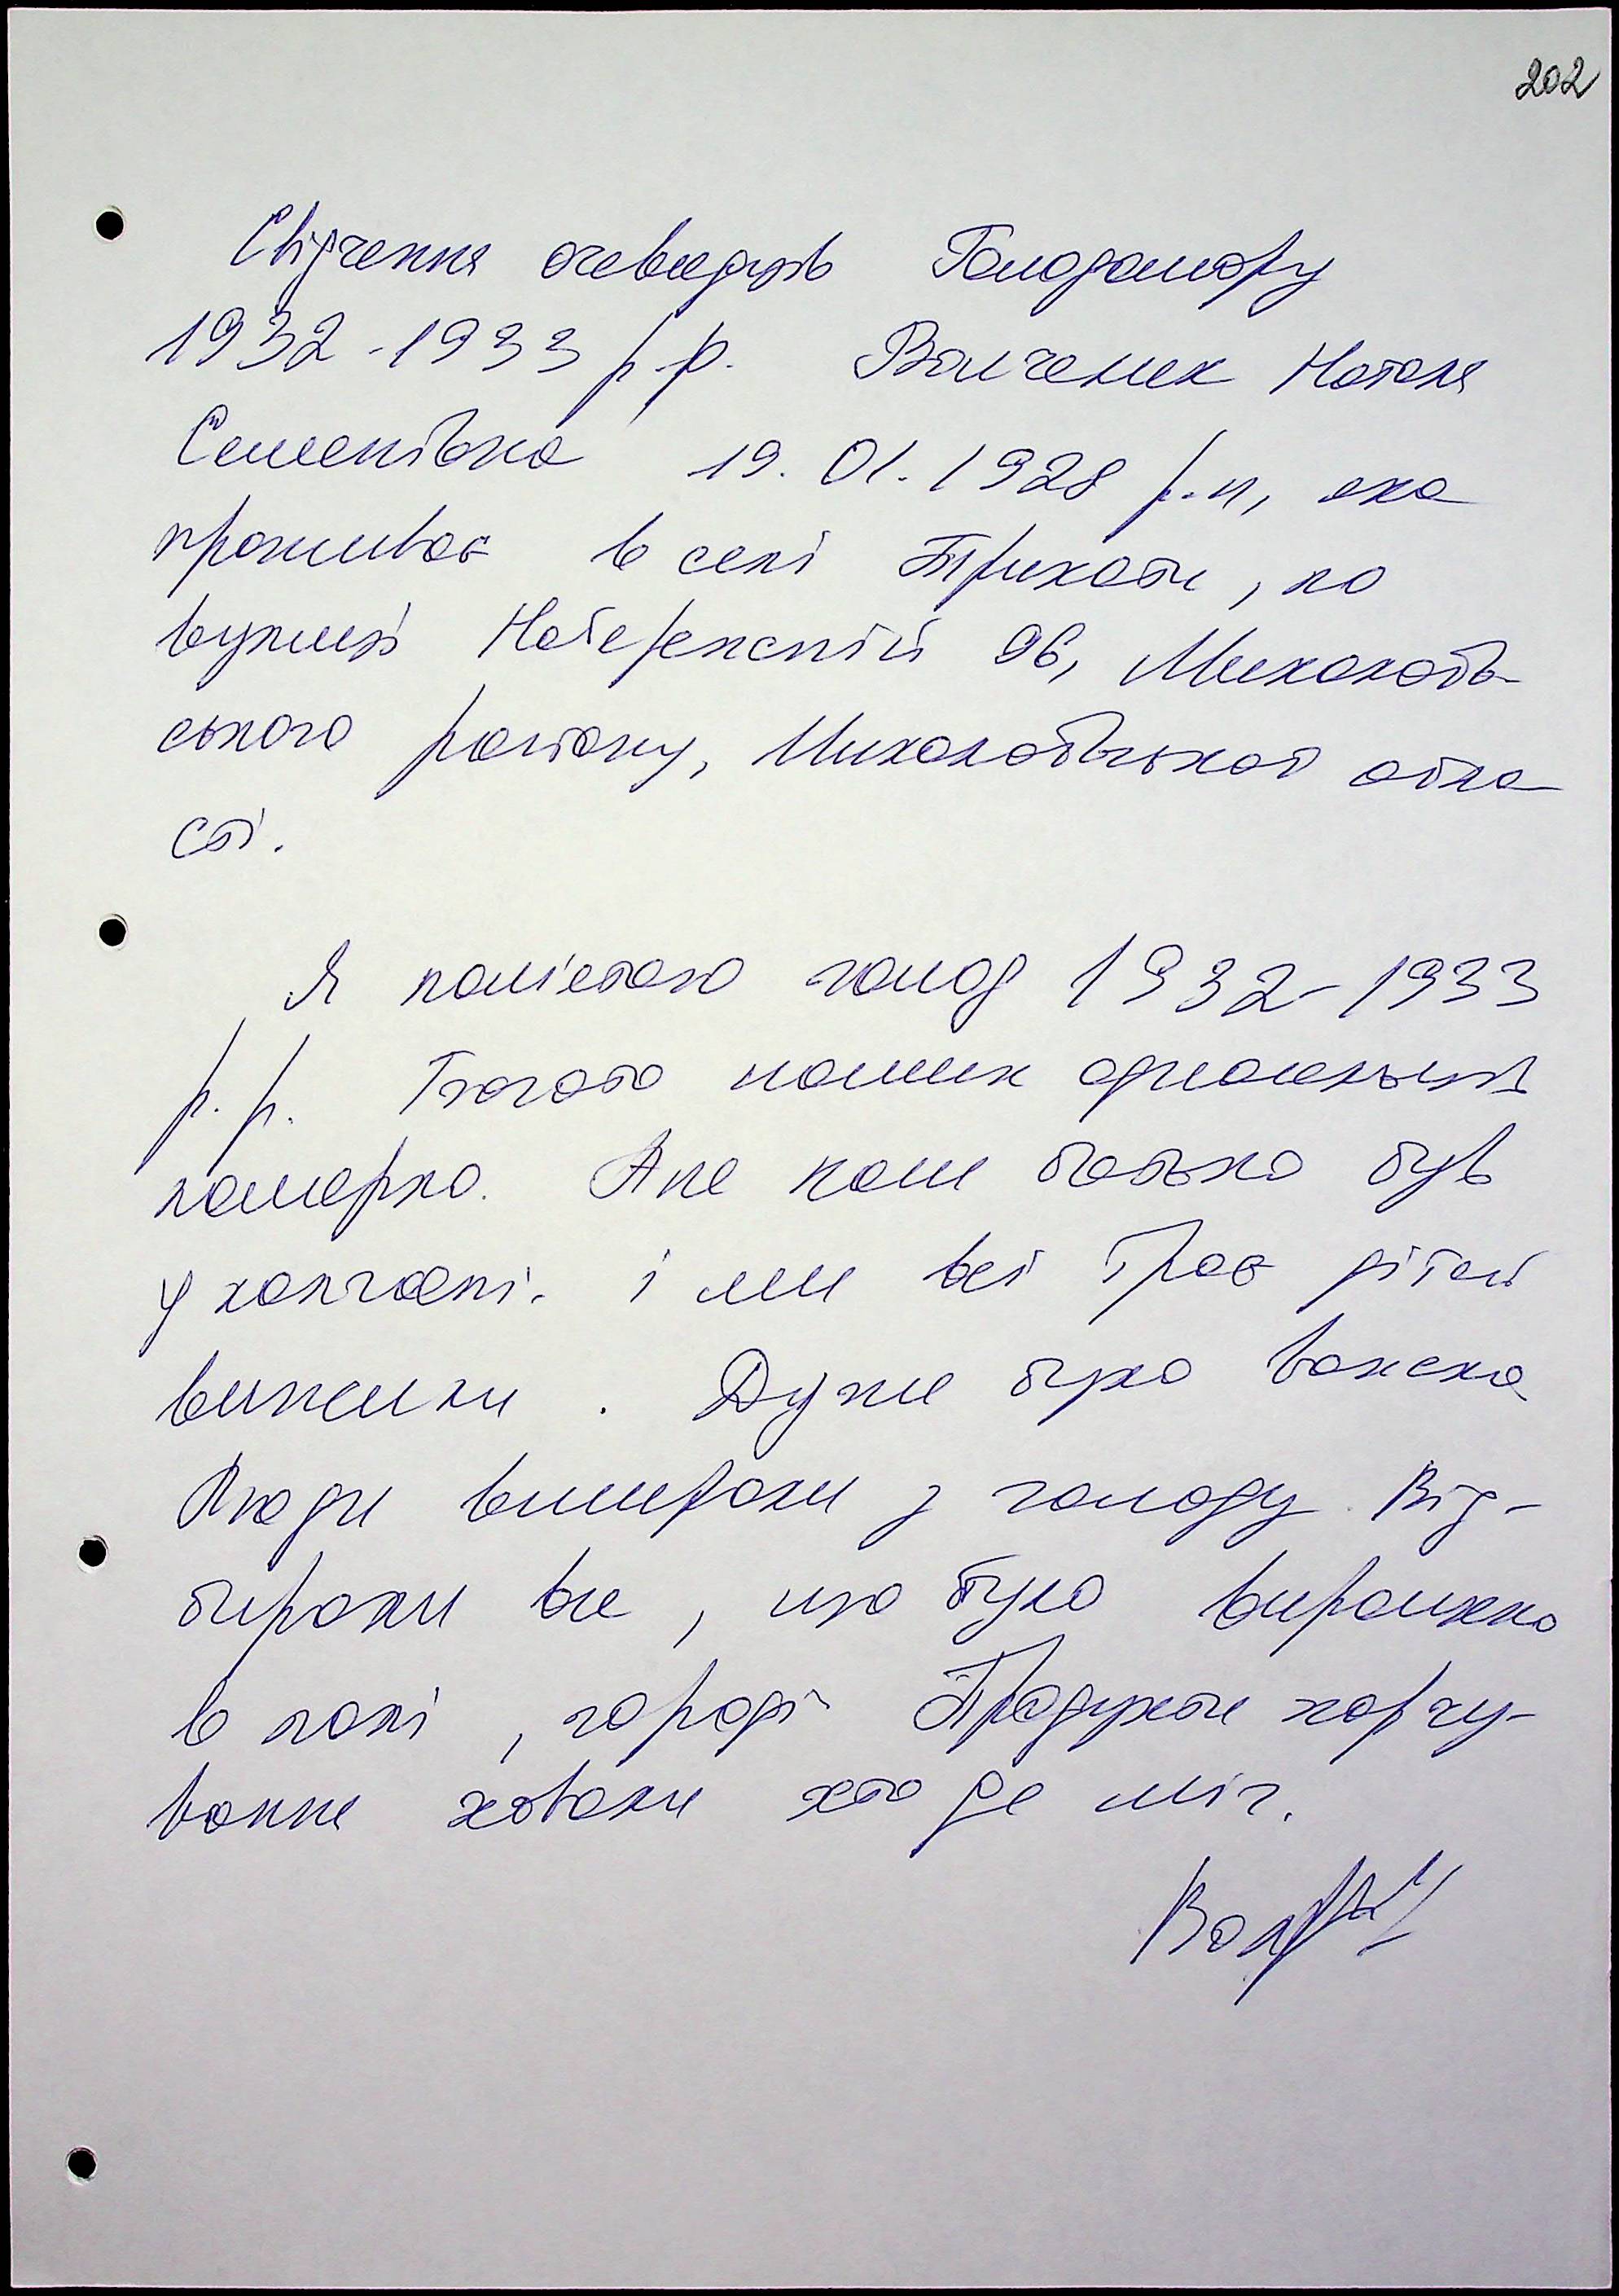 202
Свідчення очевидців Голодомору
1932-1933 р.р. Наталя
Семенівна 19.01.1928 р.н, яка
проживає в селі Трихати, по
вулиці Набережній 96, Миколаїв-
ського району, Миколаївської обла
сті.
Я пам'ятаю голод 1932-1933
р.р. Багато наших односельців
померло. Але наш батько був
у колгоспі. і ми всі троє дітей
вижили. Дуже було важко
Люди вимирали з голоду. Від-
бирали все, що було вирощено
в полі, городі Продукти харчу-
вання ховали хто де міг.